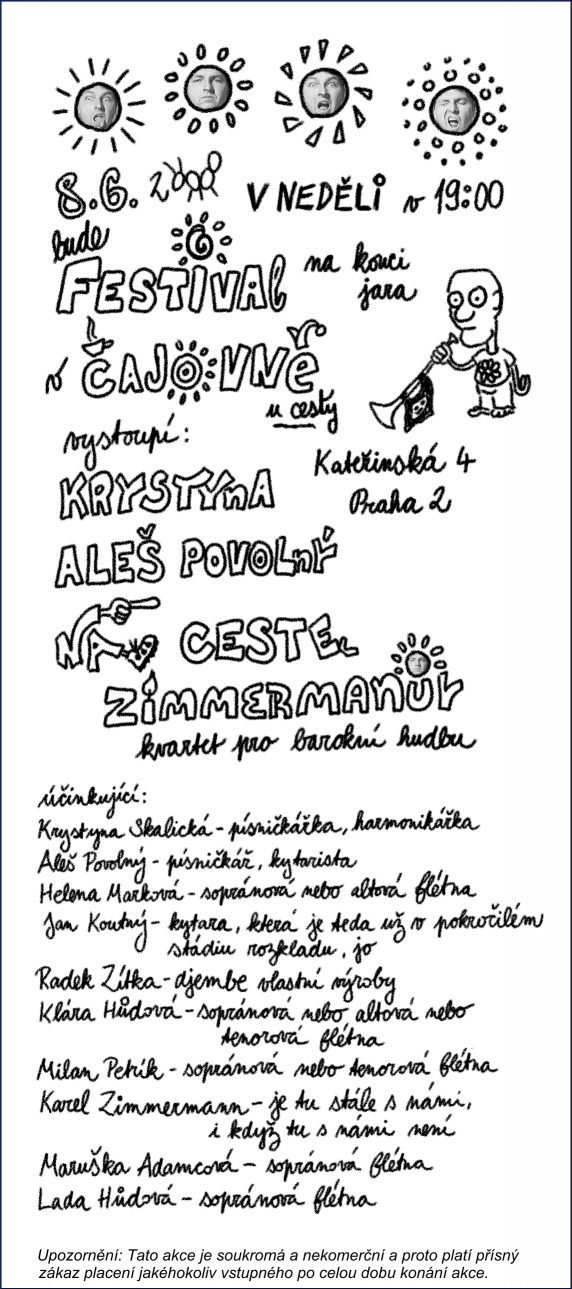 8.6. 2008 V NEDĚLI v 19:00
bude
FESTIVAL na konci
jara
v ČAJOVNĚ
u cesty
vystoupí:
Kateřinská 4
KRYSTYnA
Praha 2
ALEŠ POVOLnÝ
NA CESTE
ZimmERmAnŮV
kvartet pro barokní hudbu
účinkující:
Krystyna Skalická - písničkářka, harmonikářka
Aleš Povolný - písničkář, kytarista
Helena Marková - sopránová nebo altová flétna
Jan Koutný - kytara, která je teda už v pokročilém
stádiu rozkladu, jo
Radek Zítka - djembe vlastní výroby
Klára Hůdová - sopránová nebo altová nebo
tenorová flétna
Milan Petrík - sopránová nebo tenorová flétna
Karel Zimmermann - je tu stále s námi,
i když tu s námi není
Maruška Adamcová - sopránová flétna
Lada Hůdová - sopránová flétna
Upozornění: Tato akce je soukromá a nekomerční a proto platí přísný
zákaz placení jakéhokoliv vstupného po celou dobu konání akce.